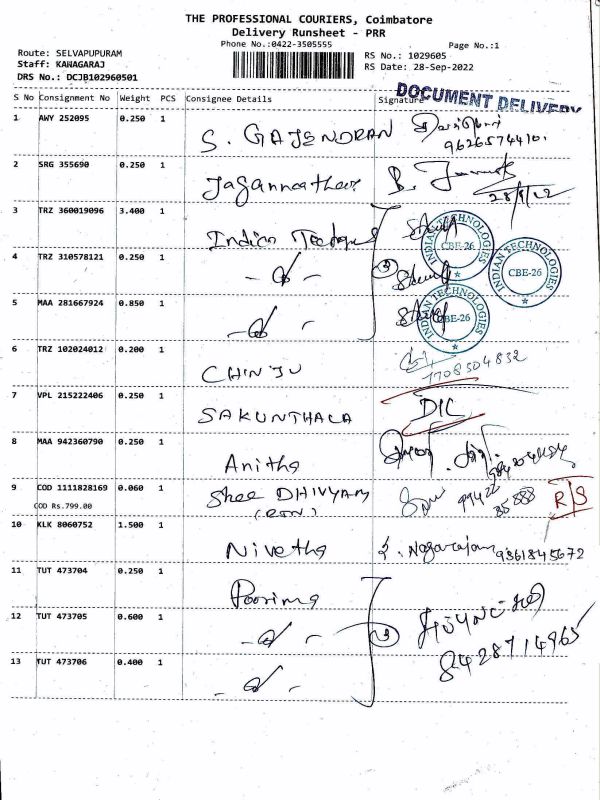 THE PROFESSIONAL COURIERS, Coimbatore
Delivery Runsheet - PRR
Phone No.:0422-3505555
Page No.:1
Route: SELVAPUPURAM
RS No.: 1029605
Staff: KANAGARAJ
RS Date: 28-Sep-2022
DRS No.: DCJB102960501
DOCUMENT DELIVERY
S No Consignment No Weight PCS Consignee Details Signature
1 AWY 252095 0.250 1 S. GAJENDRAN
9626574410
2 SRG 355690 0.250 1 Jagannathan B.
28/9/22
3 TRZ 360019096 3.400 1 Indian
INDIAN TECHNOLOGIES CBE-26
4 TRZ 310578121 0.250 1 3
INDIAN TECHNOLOGIES CBE-26
5 MAA 281667924 0.850 1
INDIAN TECHNOLOGIES CBE-26
6 TRZ 102024012 0.200 1 CHINJU
7708504832
7 VPL 215222406 0.250 1 SAKUNTHALA D/C
8 MAA 942360790 0.250 1 Anitha
9 COD 1111828169 0.060 1 Shee DHIVYAM 99422 R/S
COD Rs.799.00 35888
10 KLK 8060752 1.500 1 Nivetha Nagarajan 9361845672
11 TUT 473704 0.250 1 Poorima
12 TUT 473705 0.600 1 3
8428714965
13 TUT 473706 0.400 1